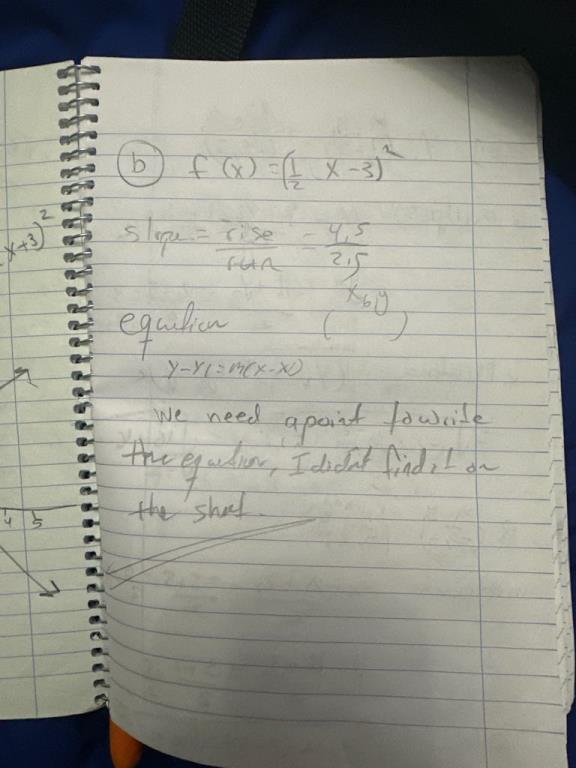 x+3)²
4 5
(b) f(x) = (1/2 x-3)²
slope = rise/run = 4,5/2,5
x, y
equation ( )
y-y1=m(x-x1)
we need a point to write
the equation, I didn't find it on
the sheet.